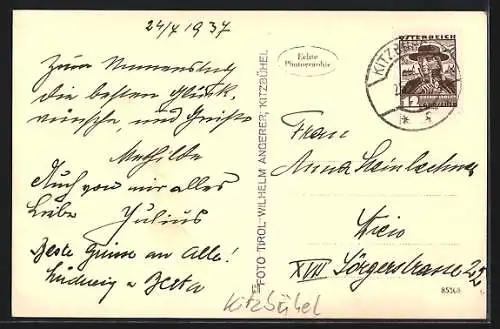 24/X 1937
Zum Namenstag
die besten Glück,
wünsche, und Grüsse
Mathilde
Auch von mir alles
Liebe Julius
Beste Grüsse an Alle!
Ludwig u Betta
Kitzbühel
FOTO TIROL WILHELM ANGERER, KITZBÜHEL
Echte
Photographie
ÖSTERREICH
12
KITZBÜHEL
Frau
Anna Steinlechner
Wien
XVII Sörgerstrasse 22
85368